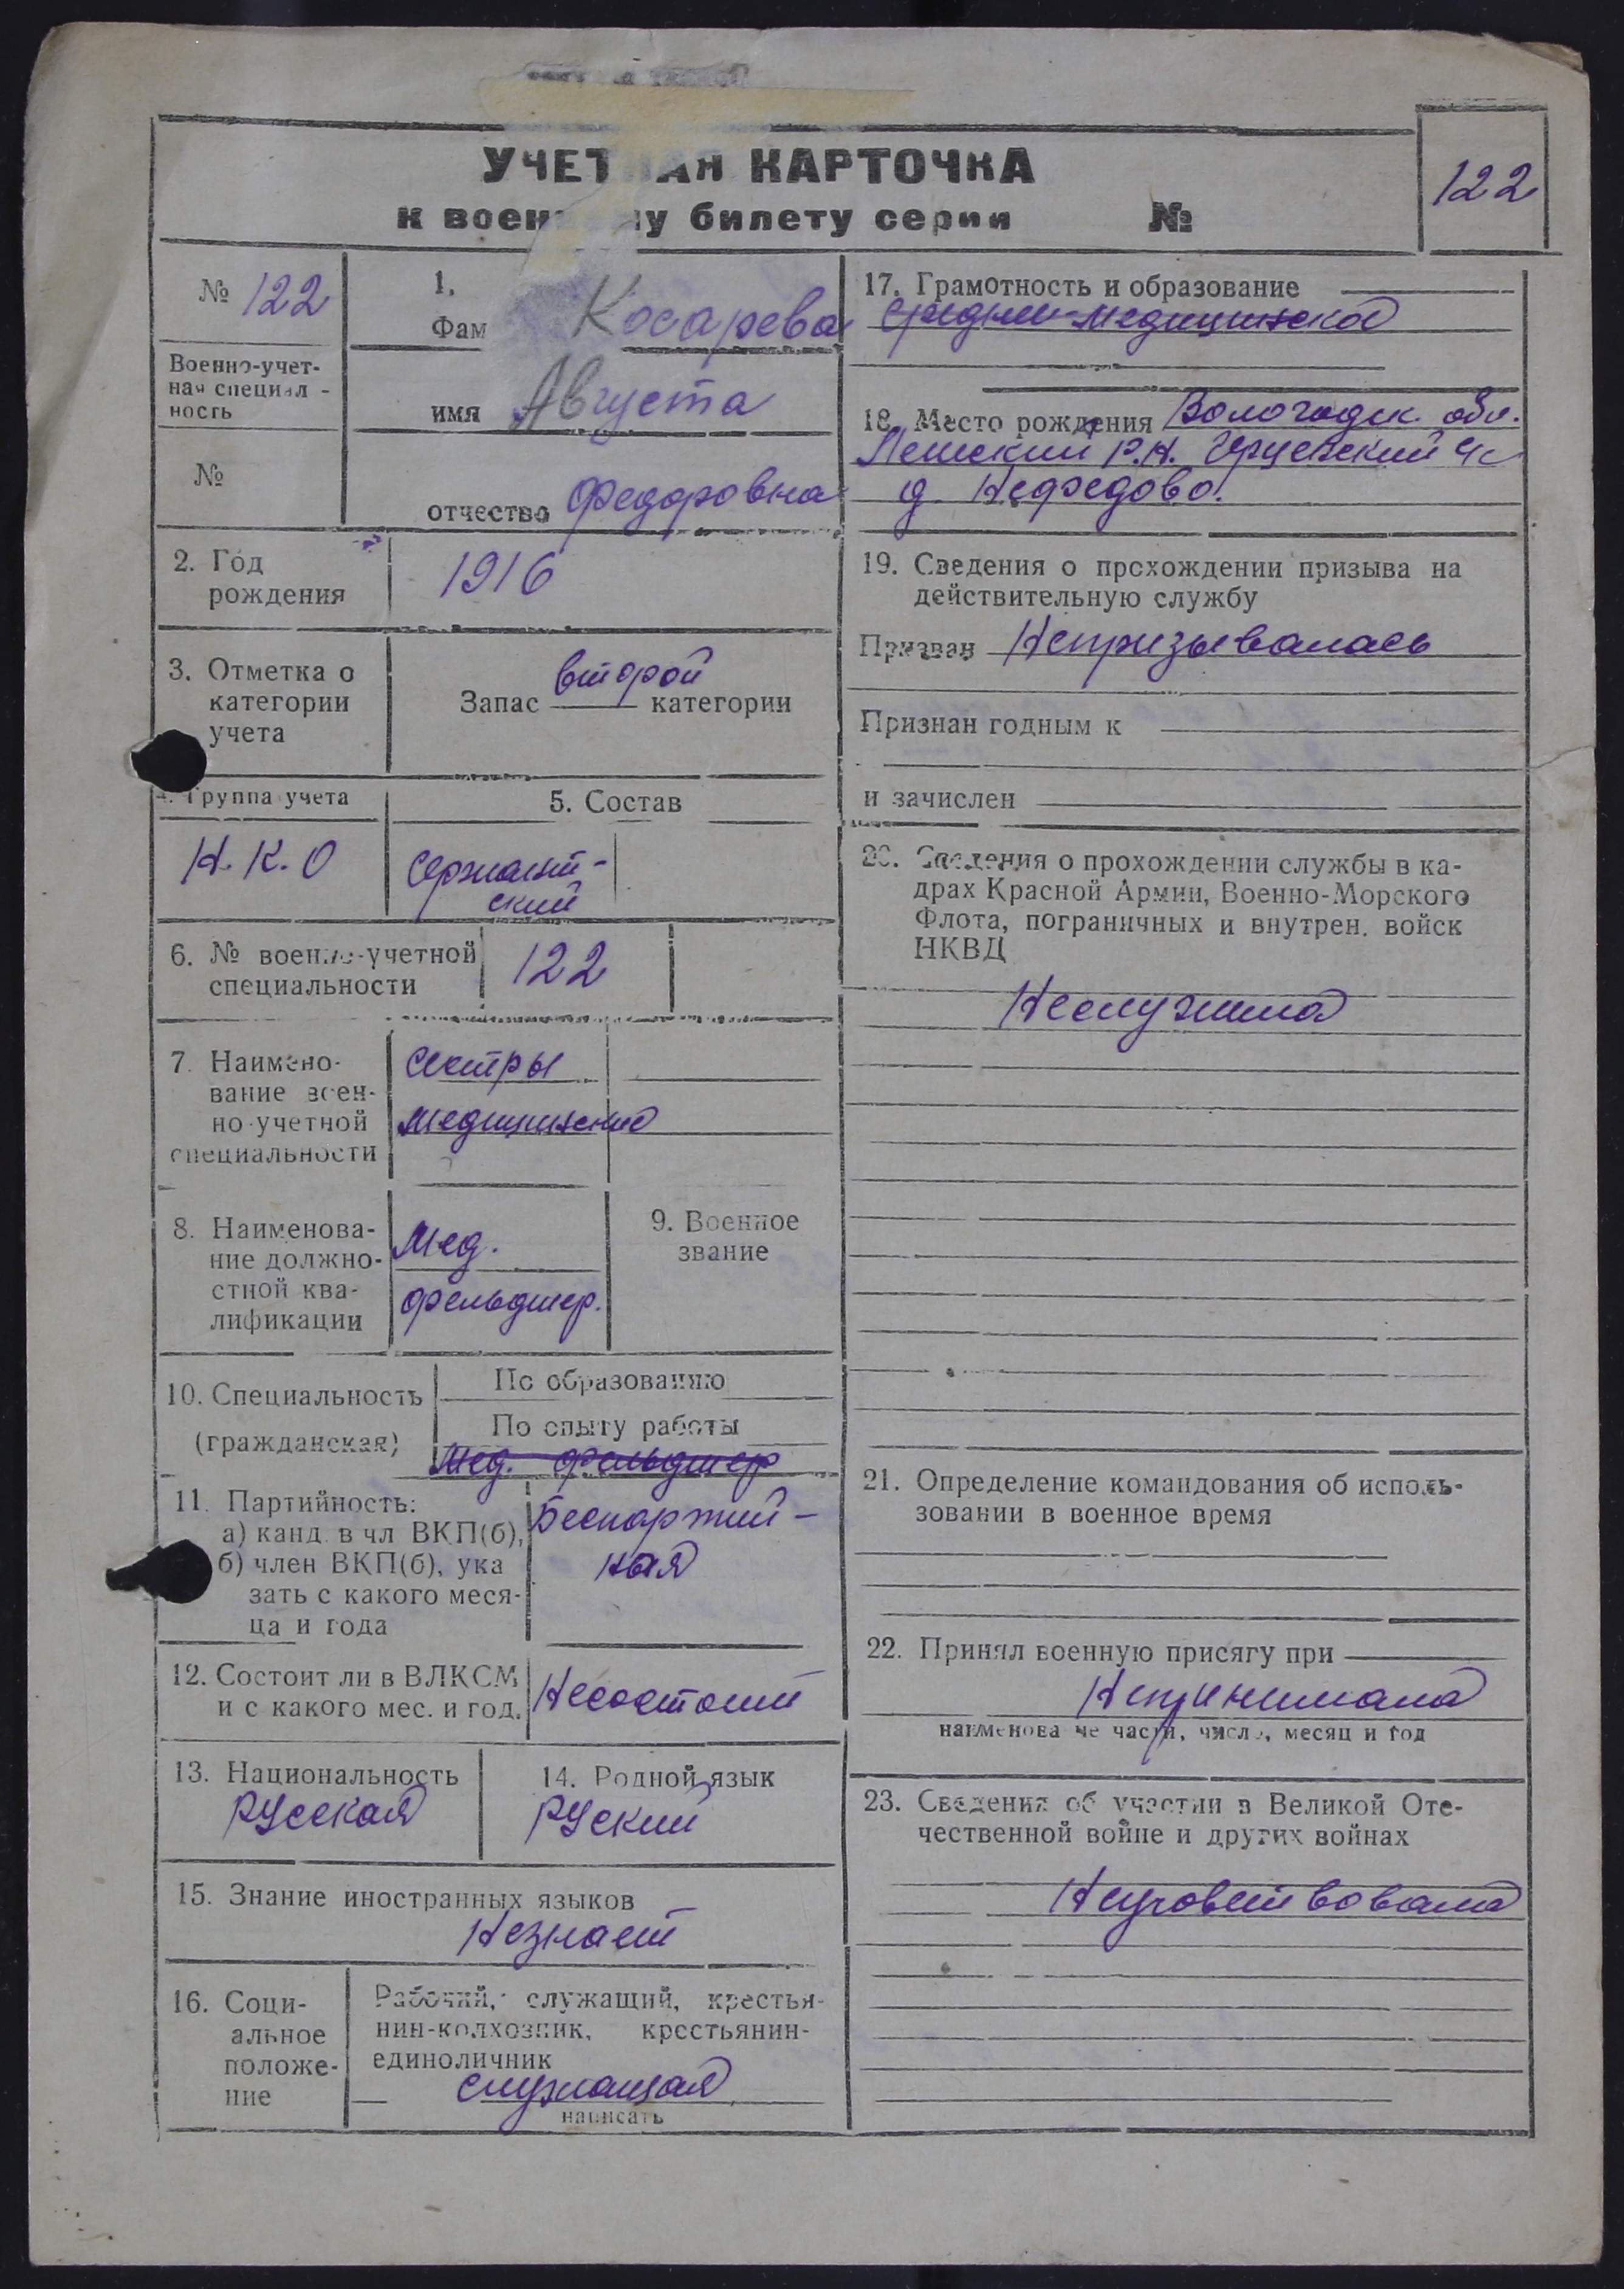 УЧЕТНАЯ КАРТОЧКА
к военному билету серии №
122
№ 122
Военно-учет-
ная специаль-
ность
№
1.
Фам Косарева
имя Августа
отчество Федоровна
2. Год
рождения
1916
3. Отметка о
категории
учета
Запас второй категории
4. Группа учета
Н.К.О
5. Состав
Сержант-
ский
6. № военно-учетной
специальности
122
7. Наимено-
вание воен-
но-учетной
специальности
Сестры
медицинские
8. Наименова-
ние должно-
стной ква-
лификации
Мед.
фельдшер.
9. Военное
звание
10. Специальность
(гражданская)
По образованию
По опыту работы
Мед. фельдшер
11. Партийность:
а) канд. в чл ВКП(б),
б) член ВКП(б), ука
зать с какого меся-
ца и года
Беспартий-
ная
12. Состоит ли в ВЛКСМ
и с какого мес. и год.
Несостоит
13. Национальность
Русская
14. Родной язык
Руский
15. Знание иностранных языков
Незнает
16. Соци-
альное
положе-
ние
Рабочий, служащий, крестья-
нин-колхозник, крестьянин-
единоличник
служащая
написать
17. Грамотность и образование
средне-медицинское
18. Место рождения Вологодск. обл.
р.н. с/с
д. Нефедово.
19. Сведения о прохождении призыва на
действительную службу
Призван Непризывалась
Признан годным к
и зачислен
20. Сведения о прохождении службы в ка-
драх Красной Армии, Военно-Морского
Флота, пограничных и внутрен. войск
НКВД
Неслужила
21. Определение командования об исполь-
зовании в военное время
22. Принял военную присягу при
Непринимала
наименование части, число, месяц и год
23. Сведения об участии в Великой Оте-
чественной войне и других войнах
Неучовствовала